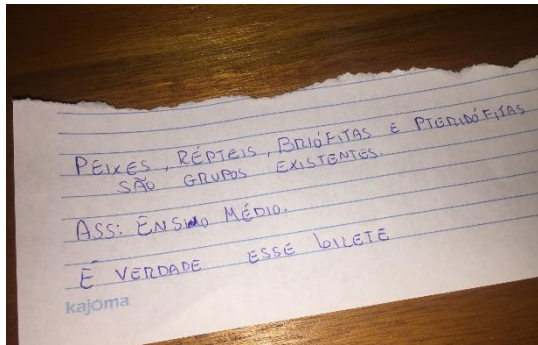 PEIXES, RÉPTEIS, BRIÓFITAS E PTERIDÓFITAS
SÃO GRUPOS EXISTENTES.
ASS: ENSINO MÉDIO.
É VERDADE ESSE BILETE
kajoma